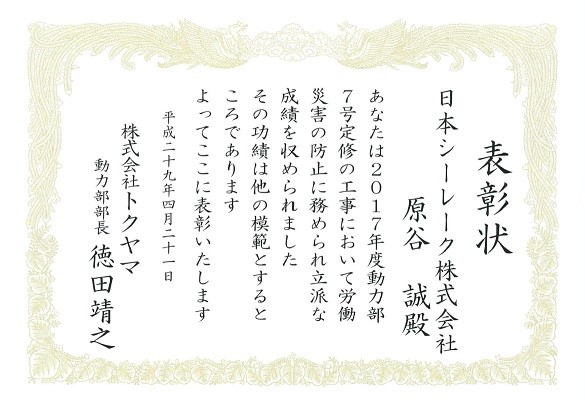 表彰状
日本シーレーク株式会社
原谷 誠殿
あなたは2017年度動力部
7号定修の工事において労働
災害の防止に務められ立派な
成績を収められました
その功績は他の模範とすると
ころであります
よってここに表彰いたします
平成二十九年四月二十一日
株式会社トクヤマ
動力部部長 徳田靖之